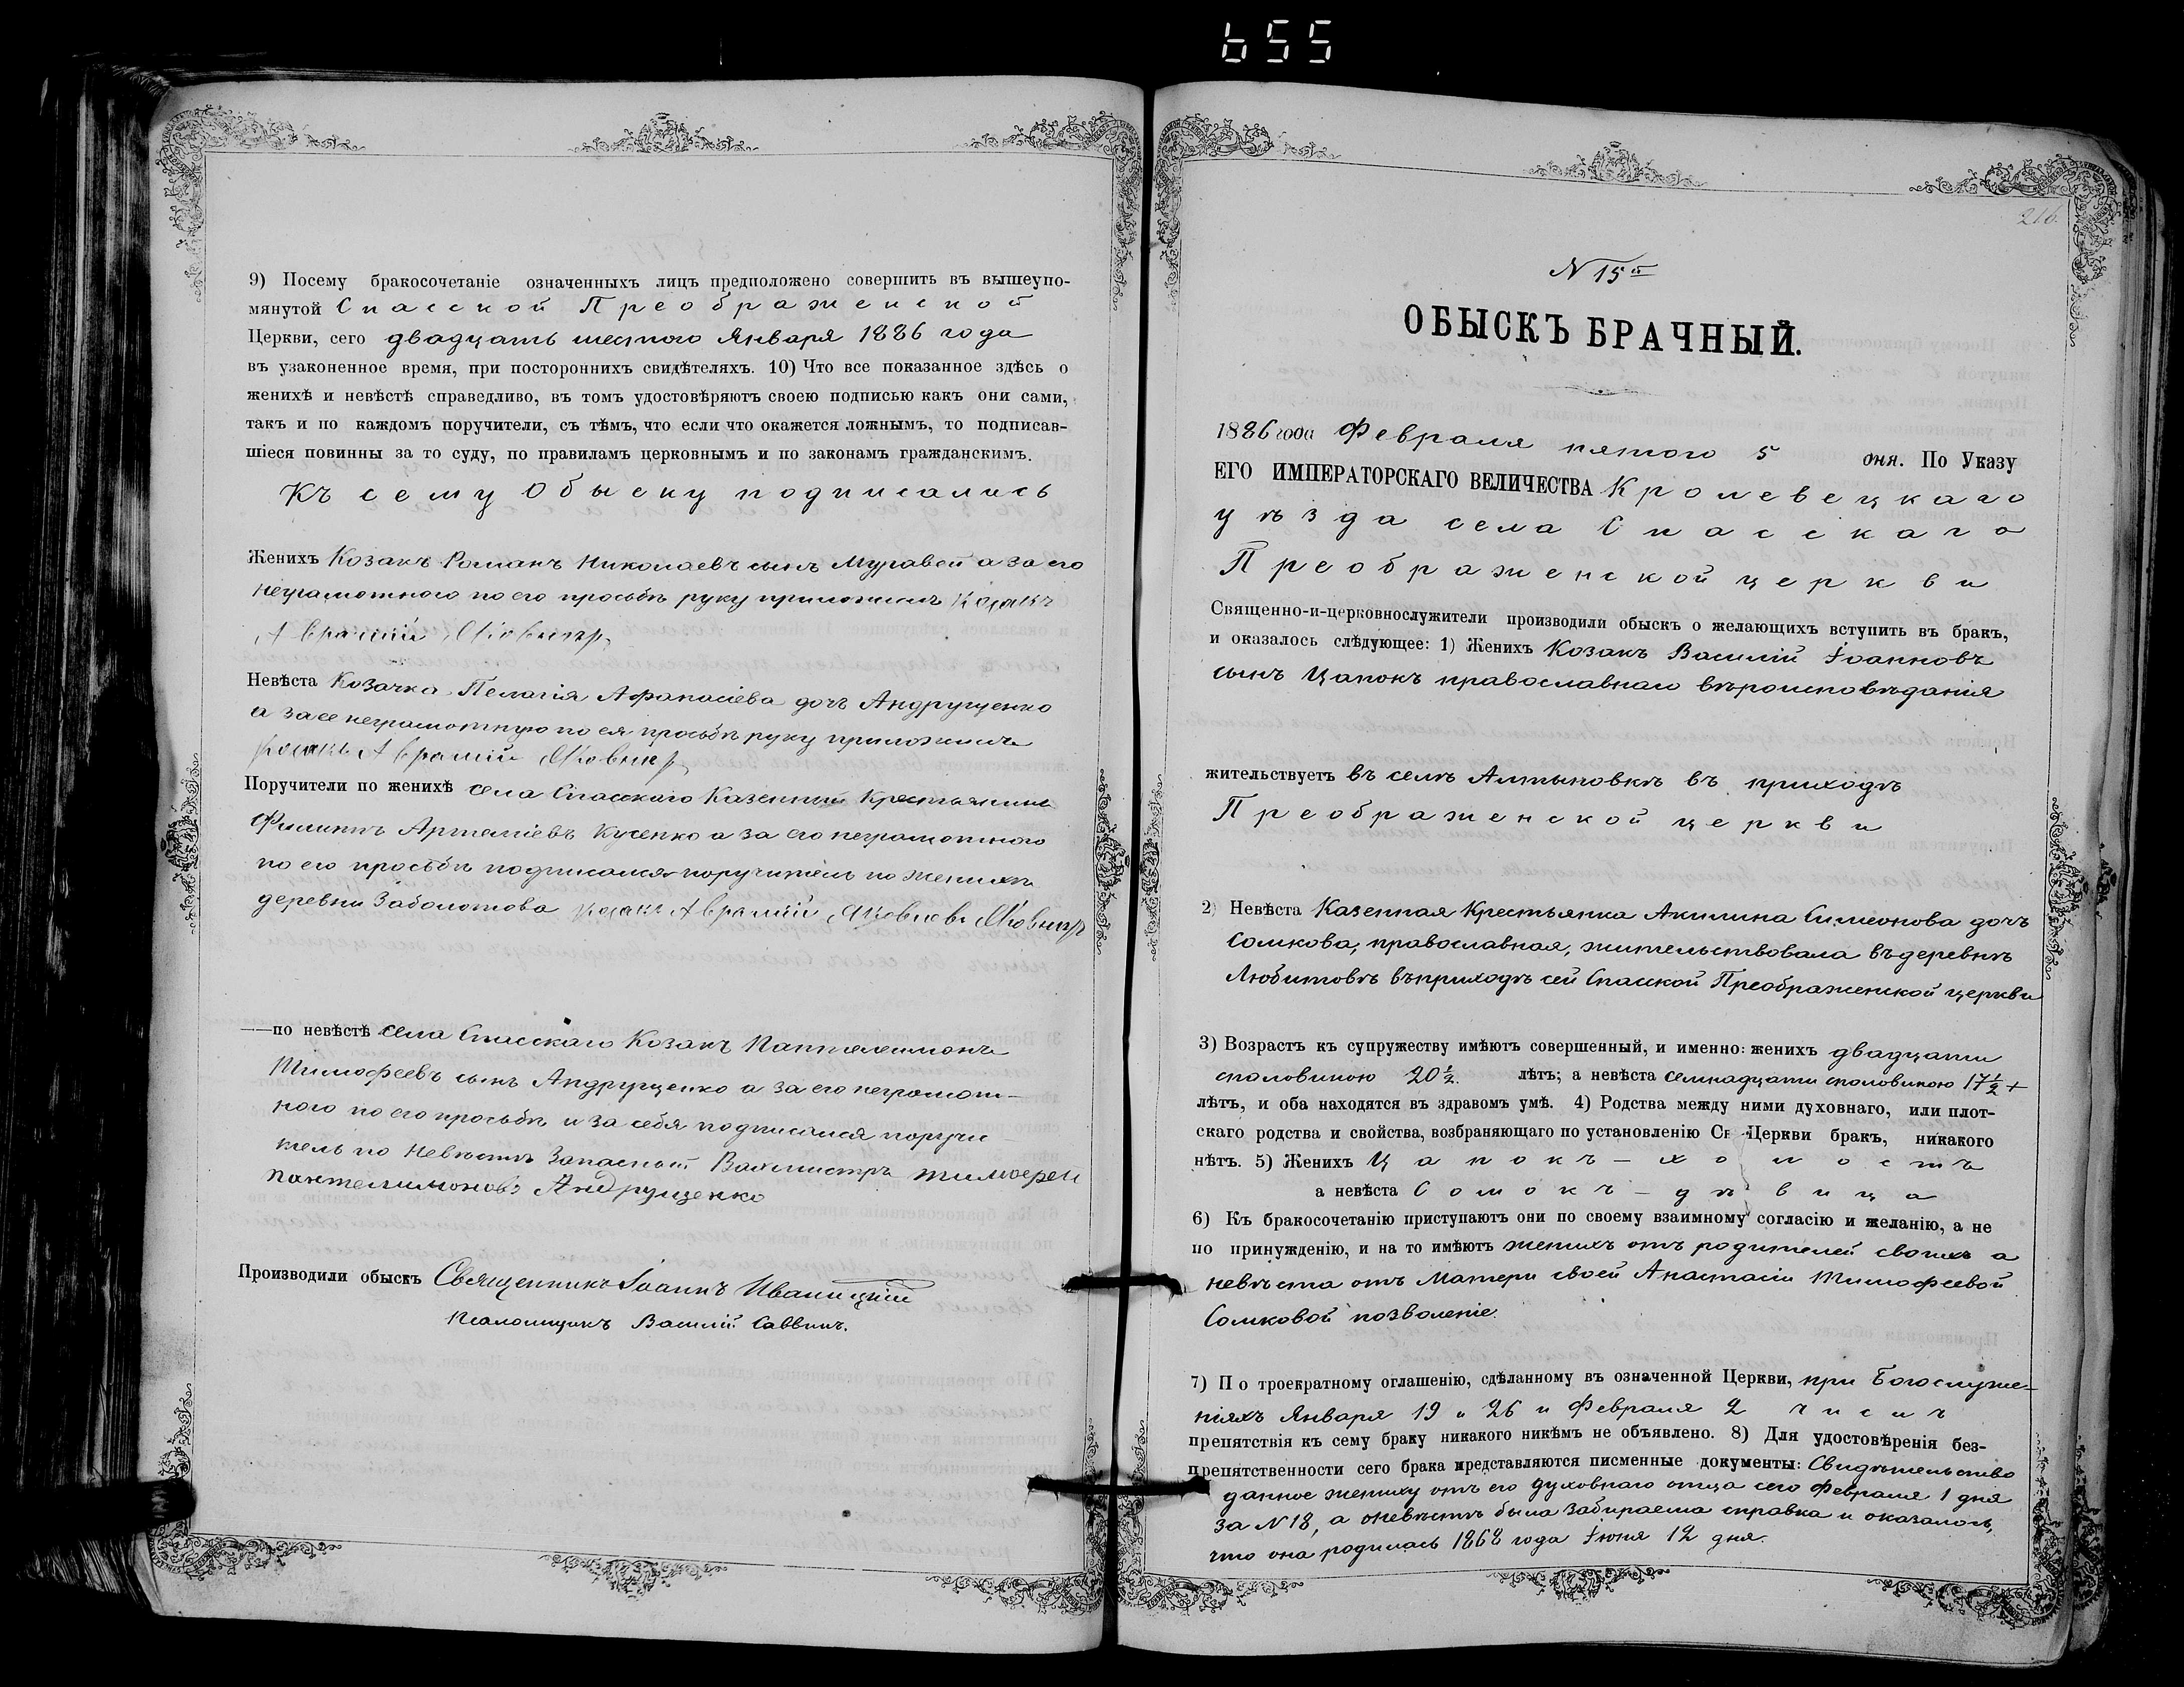 655
9) Посему бракосочетаніе означенныхъ лицъ предположено совершить въ вышеупо-
мянутой Спасской Преображенской
Церкви, сего двадцать шестого Января 1886 года
въ узаконенное время, при постороннихъ свидѣтеляхъ. 10) Что все показанное здѣсь о
женихѣ и невѣстѣ справедливо, въ томъ удостовѣряютъ своею подписью какъ они сами,
такъ и по каждомъ поручители, съ тѣмъ, что если что окажется ложнымъ, то подписав-
шіеся повинны за то суду, по правиламъ церковнымъ и по законамъ гражданскимъ.
Къ сему Обыску подписались
Женихъ Козакъ Романъ Николаевъ сынъ Муравей а за его
неграмотного по его прозьбѣ руку приложилъ Козакъ
Аврамій Яковнир
Невѣста Козачка Пелагія Афанасіева дочь Андрущенко
а за ее неграмотную по ея прозьбѣ руку приложилъ
козакъ Аврамій Яковнир
Поручители по женихѣ села Спасскаго Казенный Крестьянинъ
Филиппъ Артеміевъ Кусенко а за его неграмотного
по его прозьбѣ подписался поручитель по женихѣ
деревни Заболотова козакъ Аврамій Яковлевъ Яковниръ
—по невѣстѣ села Спасскаго Козакъ Пантелеимонъ
Тимофеевъ сынъ Андрущенко а за его неграмот-
ного по его прозьбѣ и за себя подписался поручи-
тель по невѣстѣ Запасный Вахмистръ Тимофеи
Пантелимоновъ Андрущенко
Производили обыскъ Священникъ Іоаннъ Иваницкій
Псаломщикъ Василій Саввичъ.
216
N 15й
ОБЫСКЪ БРАЧНЫЙ.
1886 года Февраля пятого 5 дня. По Указу
ЕГО ИМПЕРАТОРСКАГО ВЕЛИЧЕСТВА Кролевецкаго
уѣзда села Спасскаго
Преображенской церкви
Священно-и-церковнослужители производили обыскъ о желающихъ вступить въ бракъ,
и оказалось слѣдующее: 1) Женихъ Козакъ Василій Іоанновъ
сынъ Цапокъ православнаго вѣроисповѣданія
жительствуетъ въ селѣ Алтыновкѣ въ приходѣ
Преображенской церкви
2) Невѣста Казенная Крестьянка Акилина Симеонова дочь
Сомкова, православная, жительствовала въ деревнѣ
Любитовѣ въ приходѣ сей Спасской Преображенской церкви
3) Возрастъ къ супружеству имѣютъ совершенный, и именно: женихъ двадцати
споловиною 20½ лѣтъ; а невѣста семнадцати споловиною 17½ +
лѣтъ, и оба находятся въ здравомъ умѣ. 4) Родства между ними духовнаго, или плот-
скаго родства и свойства, возбраняющаго по установленію Св. Церкви бракъ, никакого
нѣтъ. 5) Женихъ Цапокъ — холостъ
а невѣста Сомокъ — дѣвица
6) Къ бракосочетанію приступаютъ они по своему взаимному согласію и желанію, а не
по принужденію, и на то имѣютъ женихъ отъ родителей своихъ а
невѣста отъ Матери своей Анастасіи Тимофеевой
Сомковой позволеніе.
7) По троекратному оглашенію, сдѣланному въ означенной Церкви, при Богослуже-
ніяхъ Января 19 и 26 и Февраля 2 числъ
препятствія къ сему браку никакого никѣмъ не объявлено. 8) Для удостовѣренія без-
препятственности сего брака представляются писменные документы: Свидѣтельство
данное жениху отъ его духовнаго отца сего Февраля 1 дня
за N 18, а оневѣстѣ была забираема справка и оказалось,
что она родилась 1868 года Іюня 12 дня.